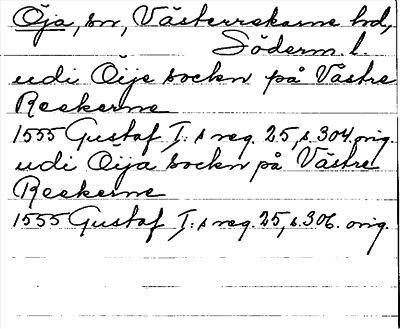 Öja, sn, Västerrekarne hd,
Söderm. l.
udi Öije sockn på Västre
Reekerne
1555 Gustaf I:s reg. 25, s. 304. orig.
udi Öija sockn på Västre
Reekerne
1555 Gustaf I:s reg. 25, s. 306. orig.